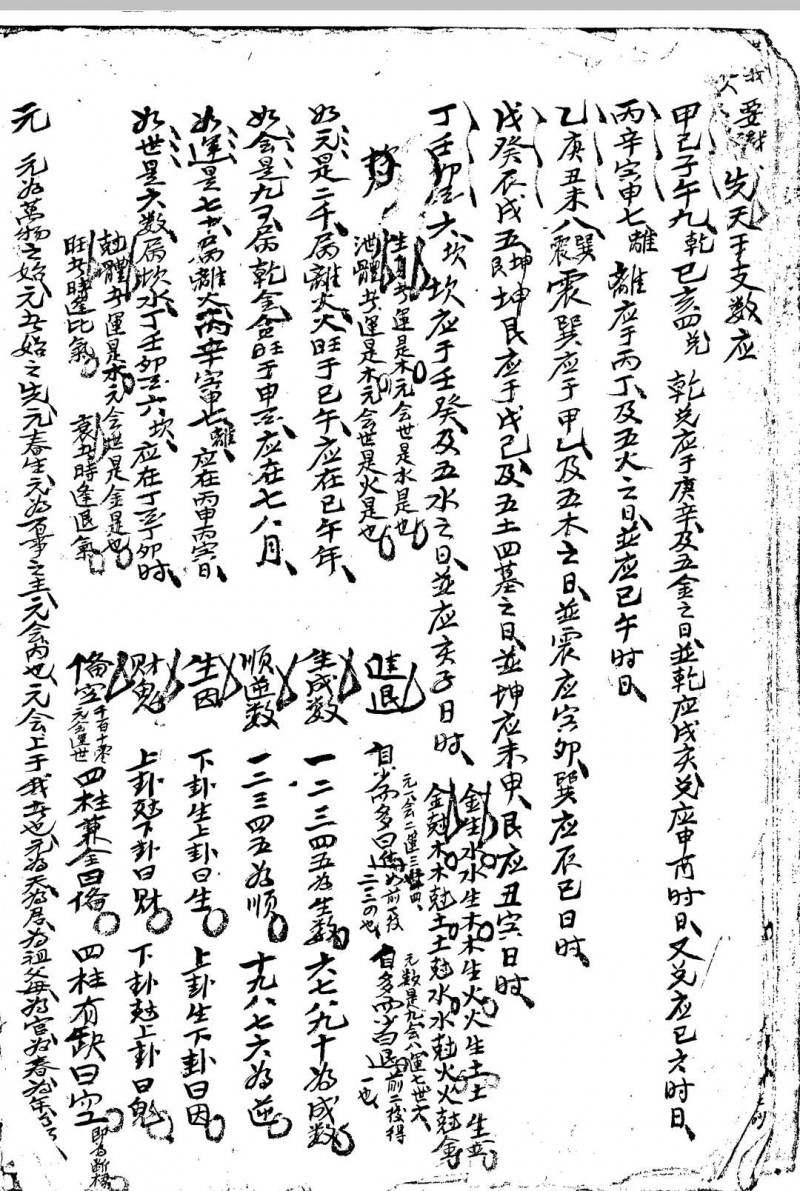 要訣 先天干支数应
甲己子午九乾 巳亥四兑 乾兑应于庚辛及五金之日並乾应戌亥兑应申酉时日又兑应巳亥时日
丙辛寅申七離 離应于丙丁及五火之日並应巳午时日
乙庚丑未八巽震 震巽应于甲乙及五木之日並震应寅卯巽应辰巳日时
戊癸辰戌五坤艮 坤艮应于戊己及五土四墓之日並坤应未申艮应丑寅日时
丁壬卯酉六坎 坎应于壬癸及五水之日並应亥子日时
金生水水生木木生火火生土土生金
金尅木木尅土土尅水水尅火火尅金
生身者運是木元会世是水是也
泄體者運是木元会世是火是也
如元是二千属離火火旺于巳午应在巳午年
如会是九百属乾金金旺于申酉应在七八月
如運是七十属離火丙辛寅申七離应在丙申丙寅日
如世是六数属坎水丁壬卯酉六坎应在丁酉丁卯时
尅體者運是木元会世是金是也
旺者時逢比氣 衰者時逢退氣
進退 自少而多曰進 自多而少曰退
元一会二運三世四 元数是九会八運七世六
生成数 一二三四五为生数 六七八九十为成数
順逆数 一二三四五为順 十九八七六为逆
生因 下卦生上卦曰生 上卦生下卦曰因
財鬼 上卦尅下卦曰財 下卦尅上卦曰鬼
俻空 千百十零元会運世 四柱兼全曰俻 四柱有缺曰空
元 元为萬物之始元者始之先元春生元为百事之主元会丙也元会上于我者也元为天为君为祖父母为官为春为年